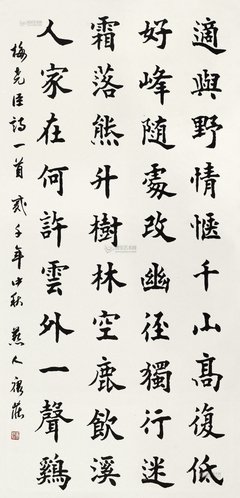 適與野情愜千山高復低
好峰隨處改幽徑獨行迷
霜落熊升樹林空鹿飲溪
人家在何許雲外一聲鷄
梅堯臣詩一首 貳千年中秋 燕人